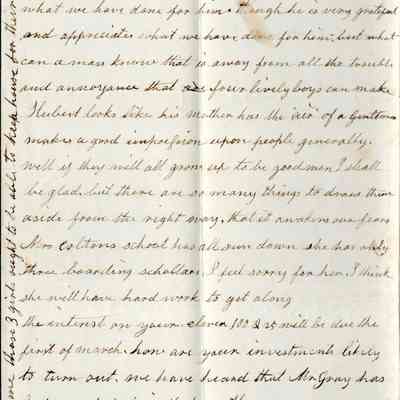 what we have done for him. though he is very grateful
and appreciates what we have done for him, but what
can a man know that is away from all the trouble
and annoyance that four lively boys can make
Hubert looks like his mother has the air of a Gentleman
makes a good impression upon people generally.
well if they will all grow up to be good men I shall
be glad. but there are so many things to draw them
aside from the right way, that it awakens our fears
Mrs Coltons school has all run down she has only
three boarding scholars, I feel sorry for her. I think
she will have hard work to get along
the interest on your eleven 100 & 25 will be due the
first of march. how are your investments likely
to turn out. we have heard that Mr Gray has
those 3 girls ought to be able to keep house for their